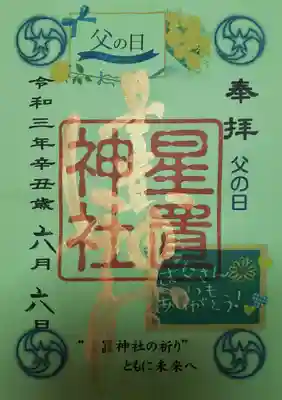 父の日
奉拝
父の日
星置
神社
令和三年辛丑歳 六月 六日
とうさん
いつも
ありがとう!
神社の祈り"
ともに未来へ